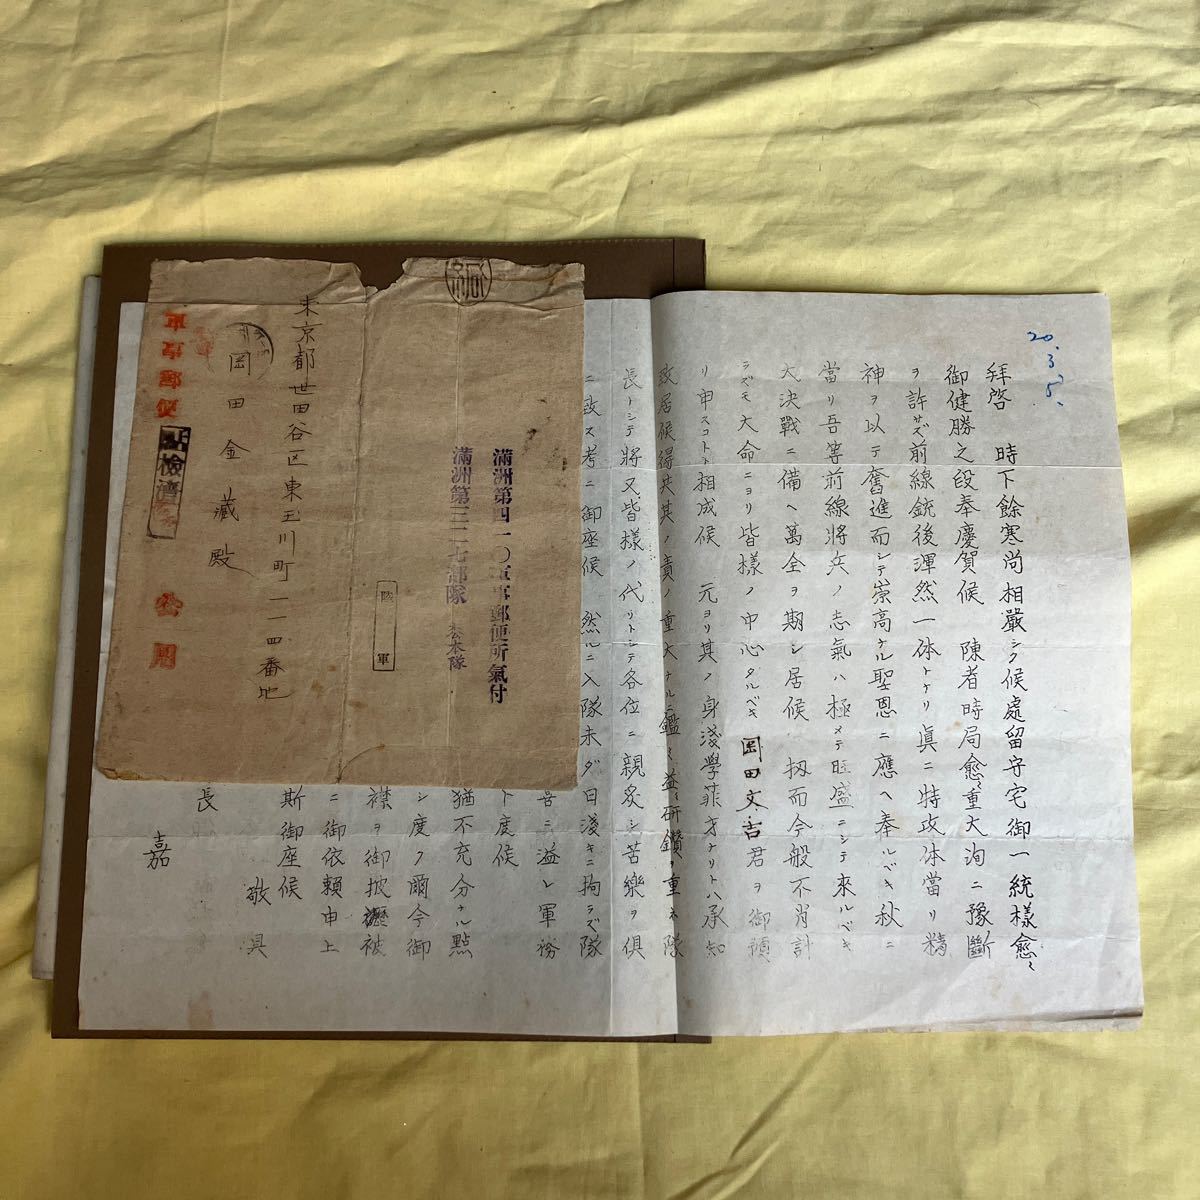 20.3.5.
拜啓　時下餘寒尚相嚴シク候處留守宅御一統樣愈〻
御健勝之段奉慶賀候　陳者時局愈〻重大洵ニ豫斷
ヲ許サズ前線銃後渾然一体トナリ眞ニ特攻体當リ精
神ヲ以テ奮進而シテ崇高ナル聖恩ニ應ヘ奉ルベキ秋ニ
當リ吾等前線將兵ノ志氣ハ極メテ旺盛ニシテ來ルベキ
大決戰ニ備ヘ萬全ヲ期シ居候　扨而今般不肖計
ラズモ大命ニヨリ皆樣ノ中心タルベキ岡田文吉君ヲ御預
リ申スコトト相成候　元ヨリ其ノ身淺學菲才ナリトハ承知
致居候得共其ノ責ノ重大ナルニ鑑ミ益〻研鑽ヲ重ネ隊
長トシテ將又皆樣ノ代リトシテ各位ニ親炙シ苦樂ヲ俱
ニ致ス考ニ御座候　然ルニ入隊未ダ日淺キニ拘ラズ隊
喜ニ溢レ軍務
ト度候
猶不充分ナル點
シ度ク爾今御
襟ヲ御披瀝被
ニ御依賴申上
斯御座候
敬具
長
嘉
滿洲第四一〇軍事郵便所氣付
滿洲第三二七部隊
陸軍
東京都世田谷区東玉川町一一四番地
岡田金藏殿
軍事郵便
檢濟
公用